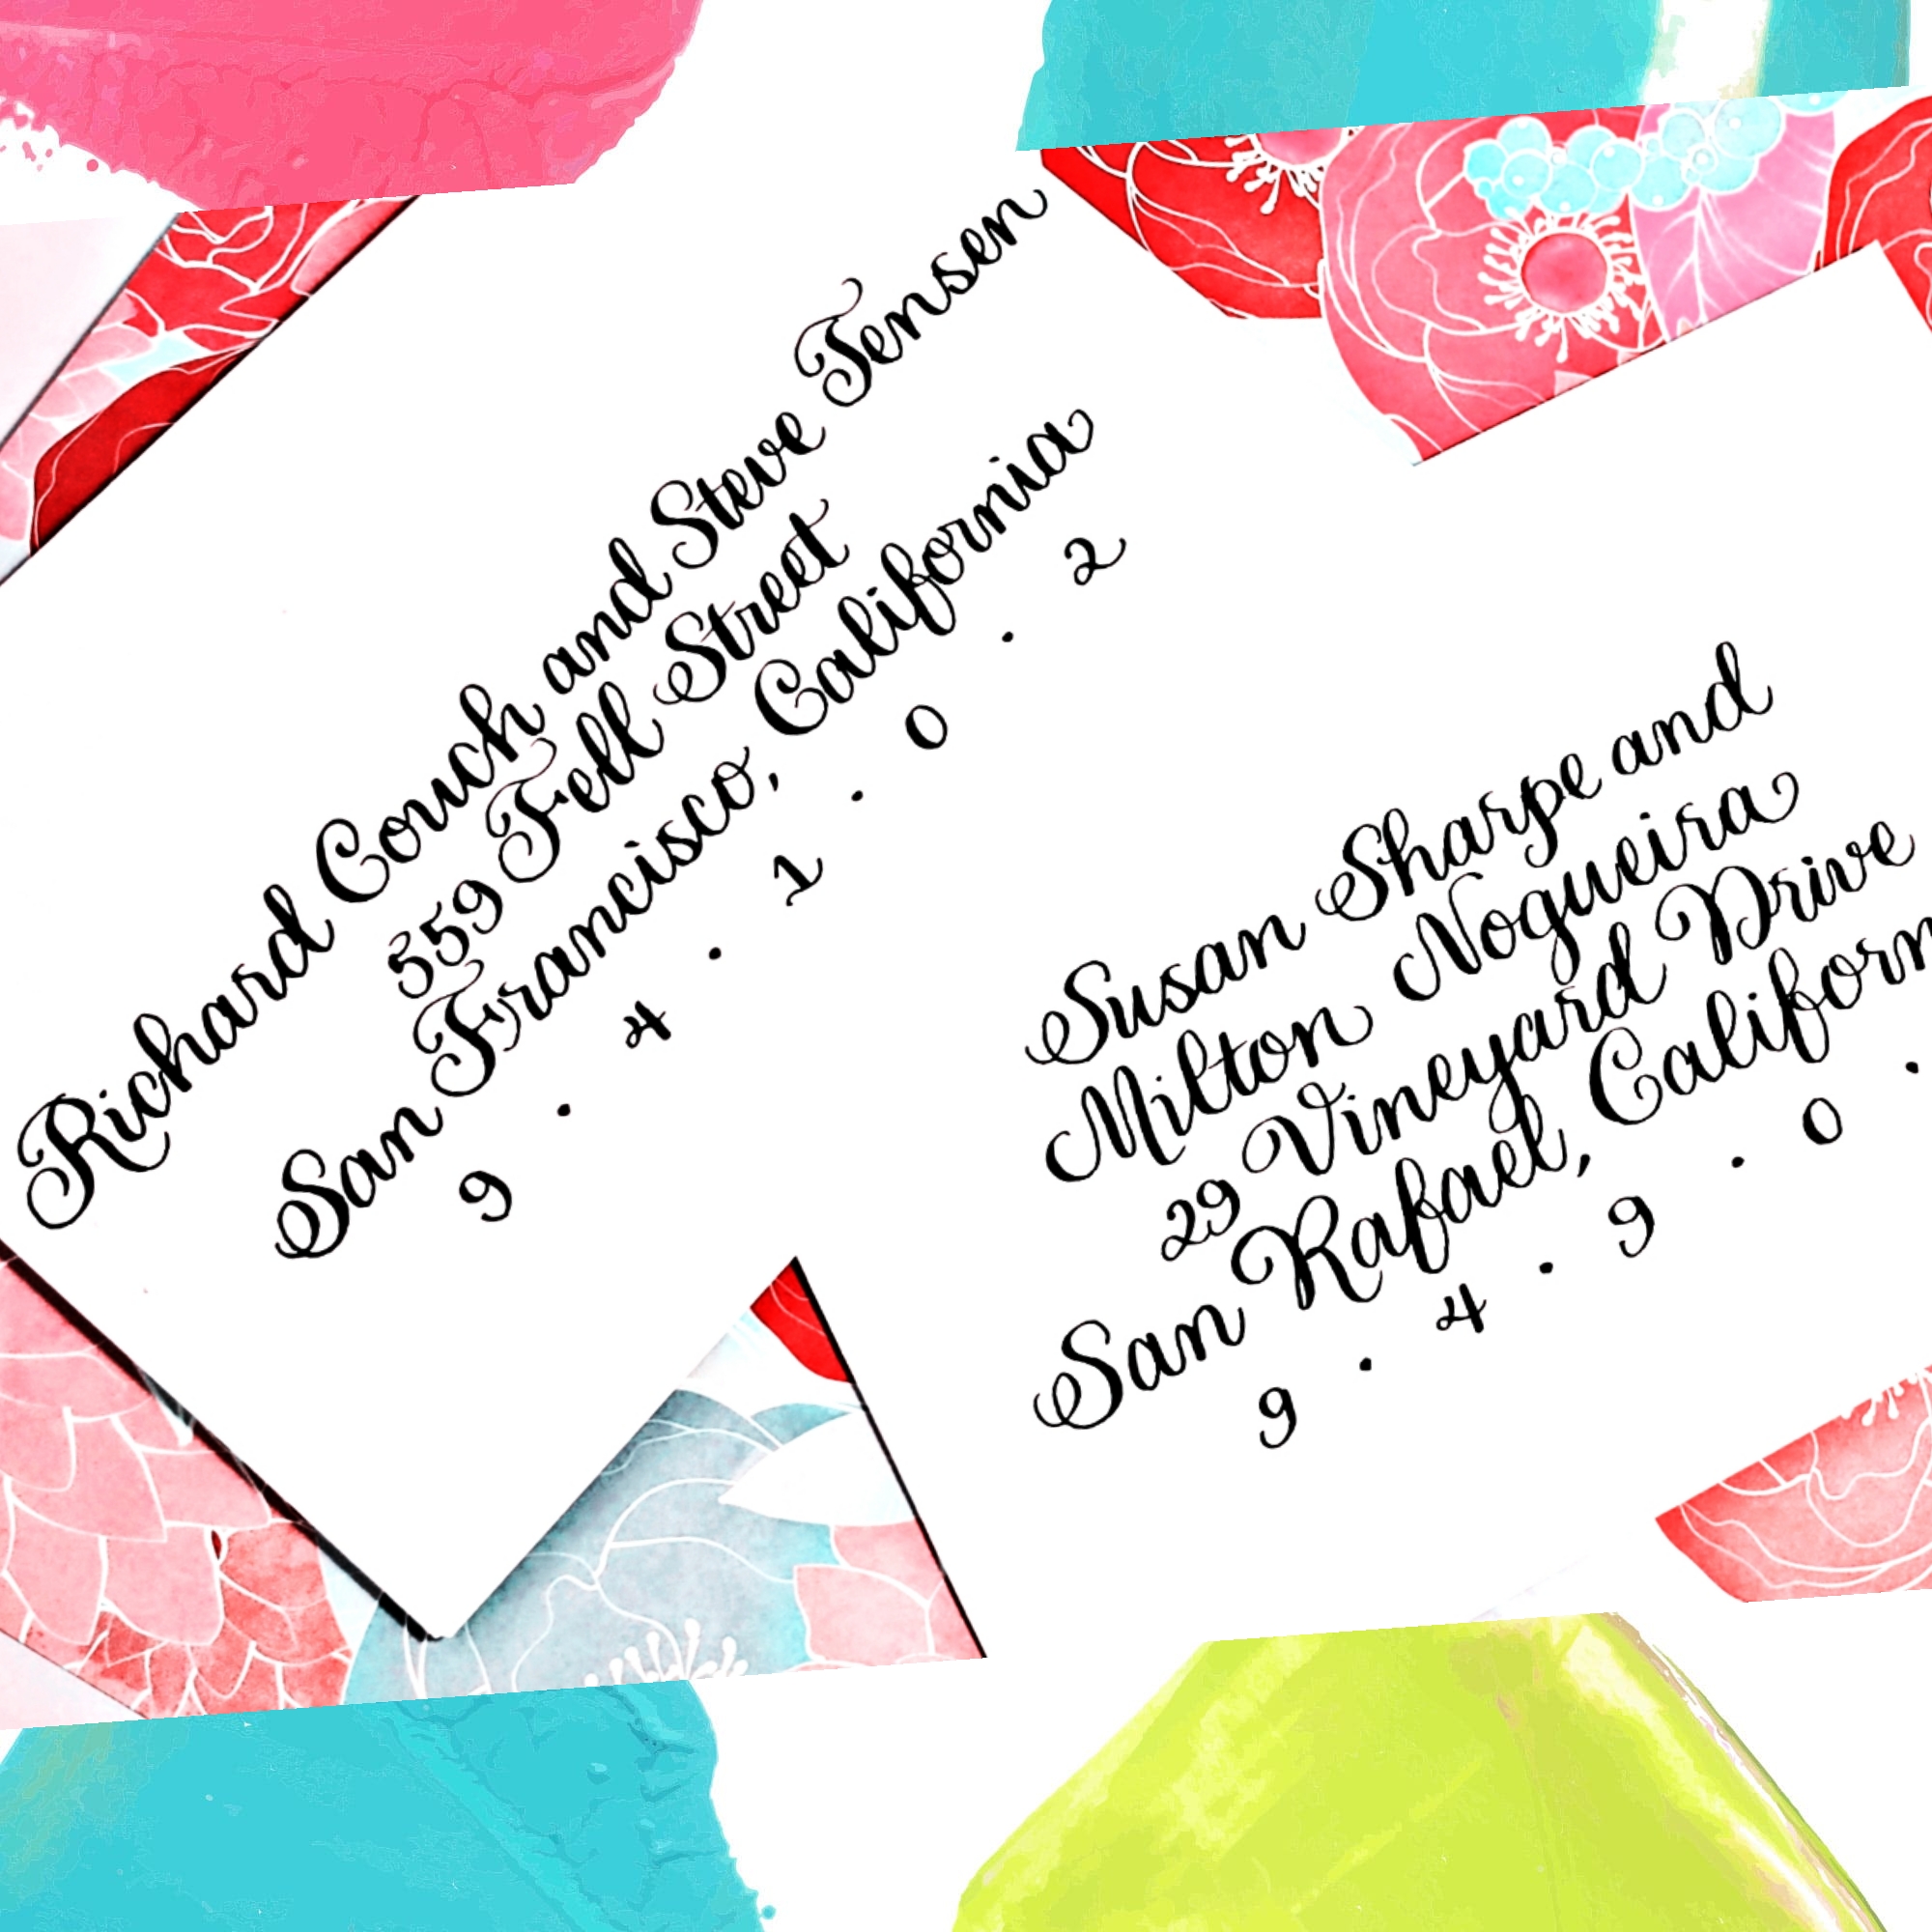 Richard Couch and Steve Jensen
559 Fell Street
San Francisco, California
9 . 4 . 1 . 0 . 2
Susan Sharpe and
Milton Nogueira
29 Vineyard Drive
San Rafael, Californ
9 . 4 . 9 . 0 .